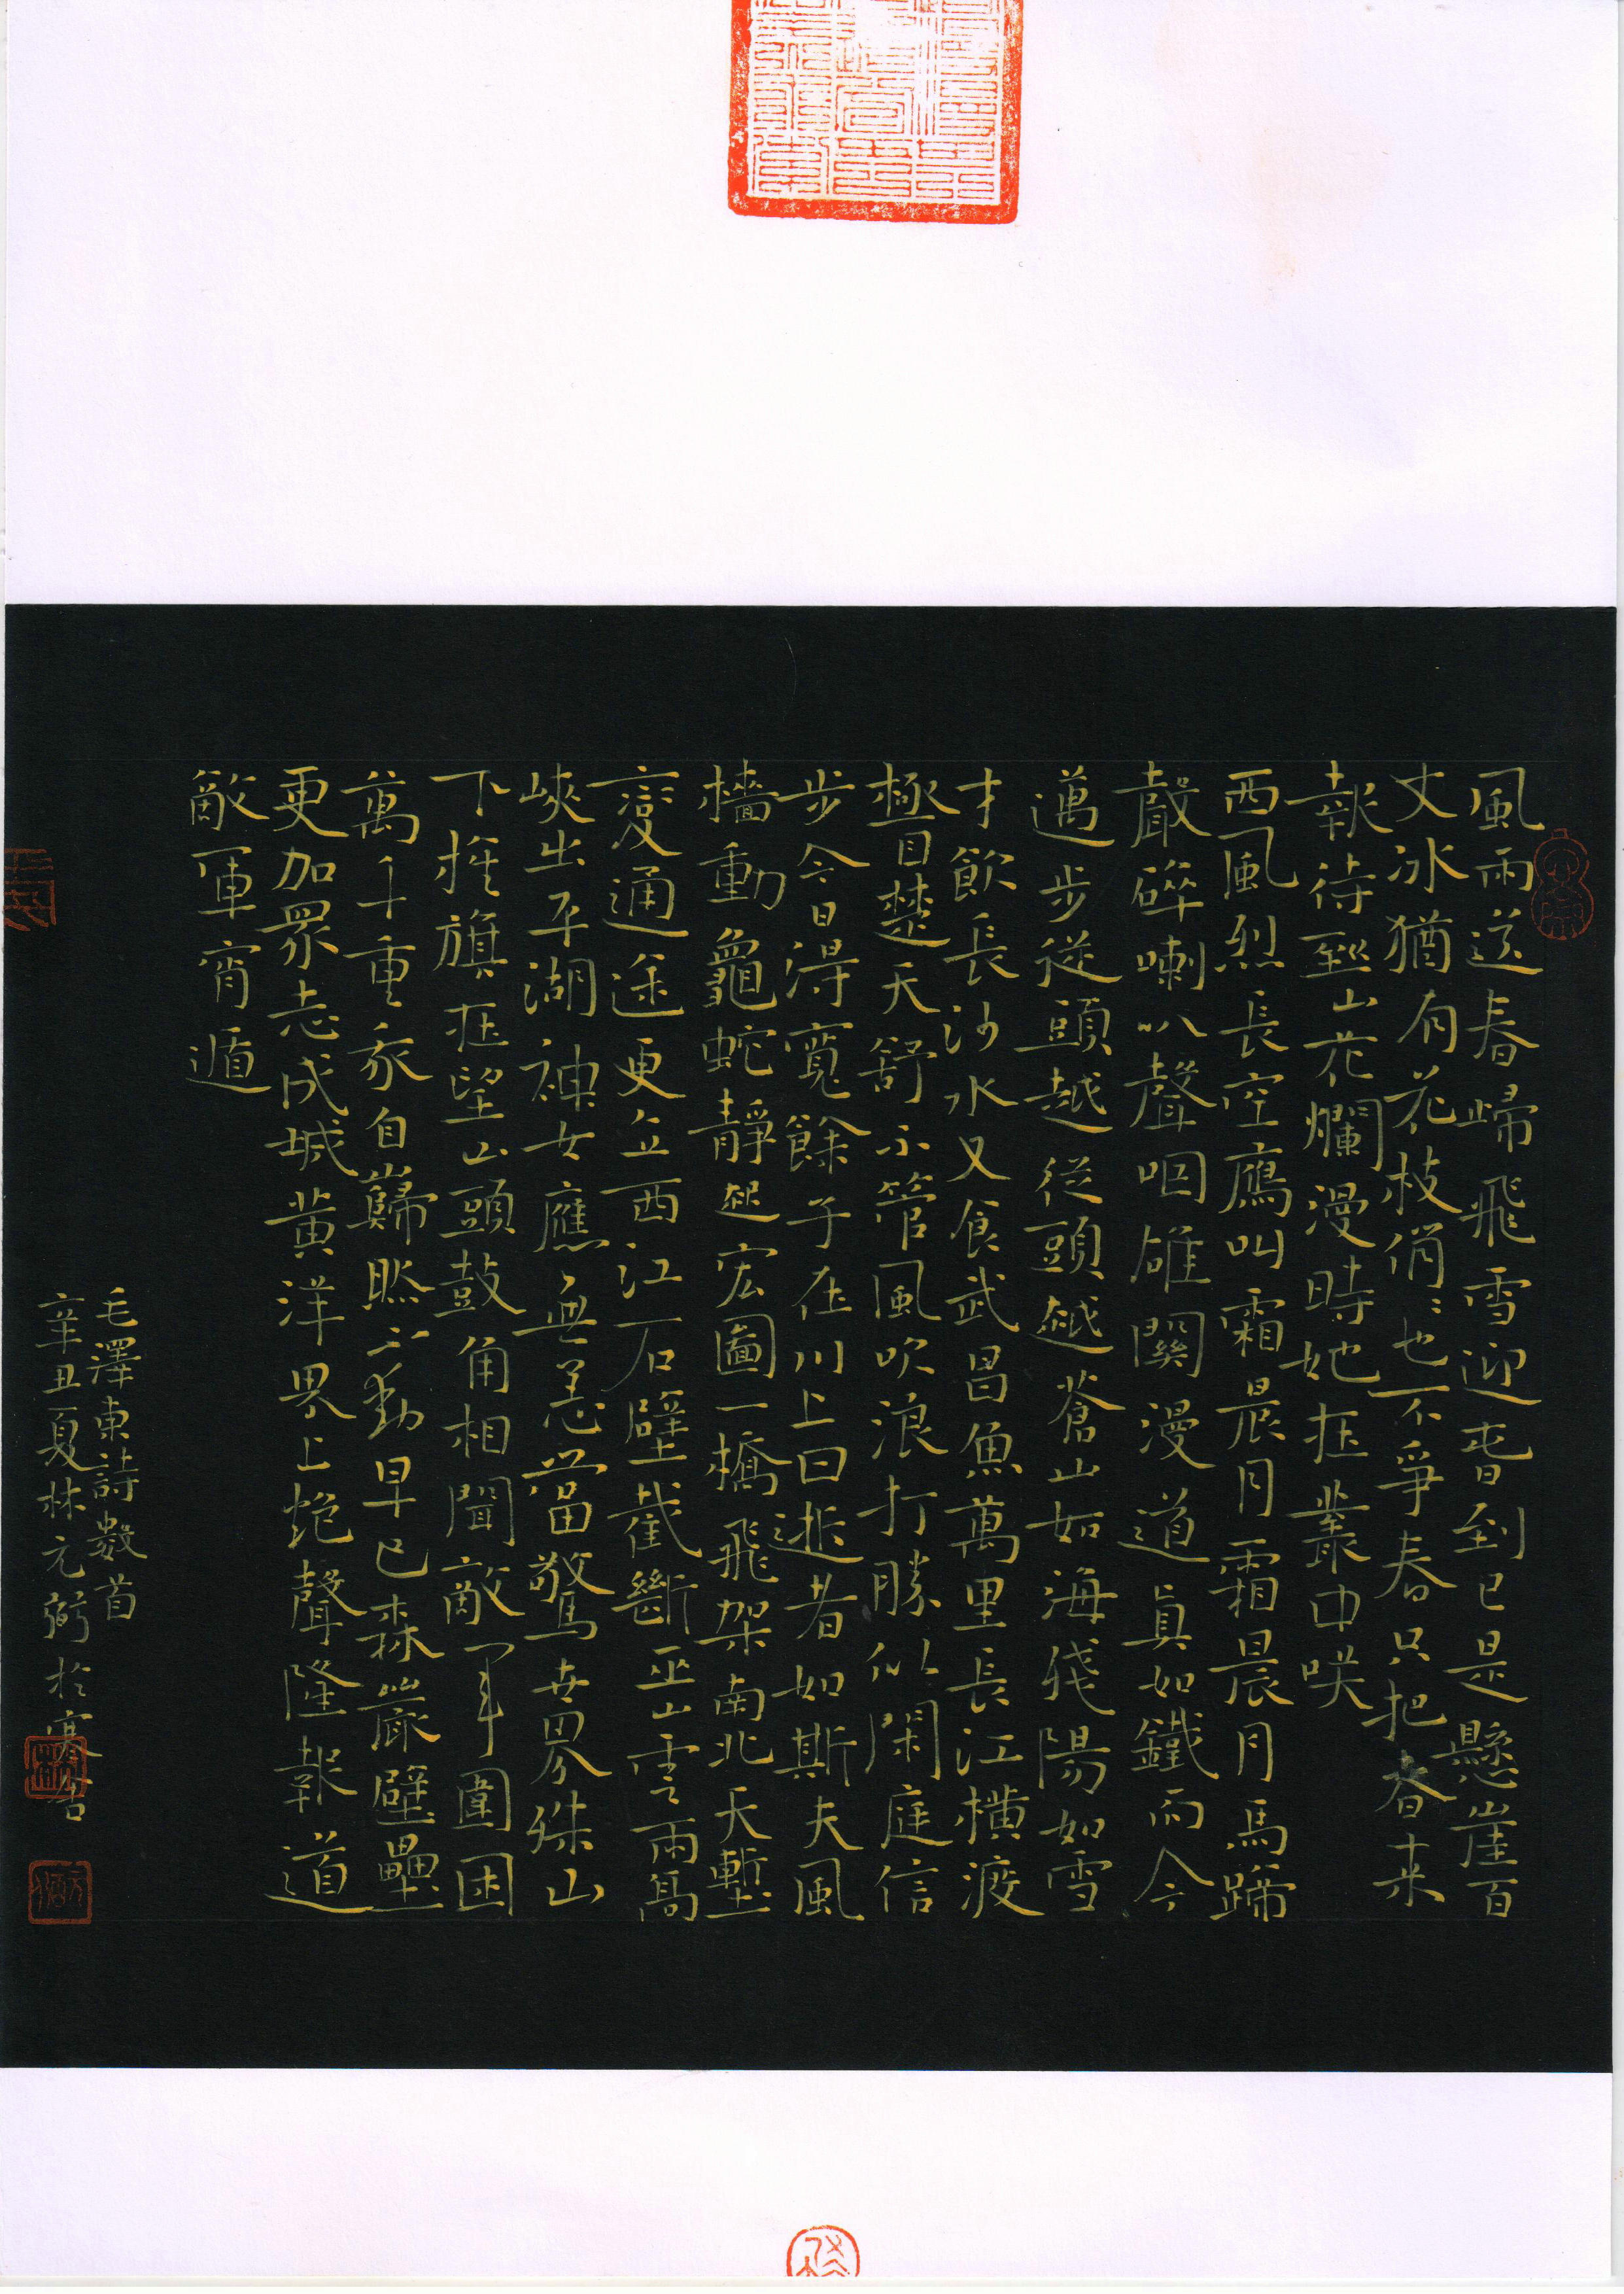 風雨送春歸飛雪迎春到已是懸崖百
丈冰猶有花枝俏〻也不爭春只把春来
報待到山花爛漫時她在叢中咲
西風烈長空鴈叫霜晨月霜晨月馬蹄
聲碎喇叭聲咽雄關漫道真如鐵而今
邁步從頭越從頭越蒼山如海殘陽如雪
才飲長沙水又食武昌魚萬里長江橫渡
極目楚天舒不管風吹浪打勝似閑庭信
步今日得寬餘子在川上曰逝者如斯夫風
檣動龜蛇靜起宏圖一橋飛架南北天塹
變通途更立西江石壁截斷巫山雲雨高
峽出平湖神女應無恙當驚世界殊山
下旌旗在望山頭鼓角相聞敵軍圍困
萬千重我自巋然不動早已森嚴壁壘
更加眾志成城黃洋界上炮聲隆報道
敵軍宵遁
毛澤東詩數首
辛丑夏林元弼於寒舍